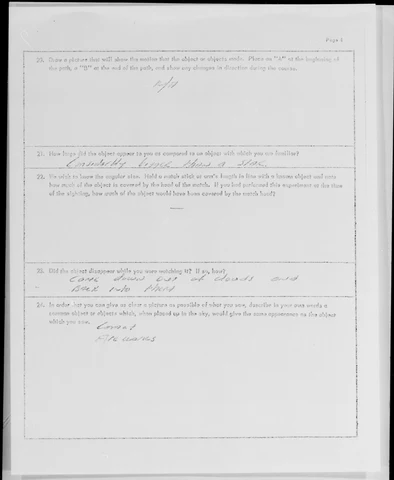 Page 4
20. Draw a picture that will show the motion that the object or objects made. Place an "A" at the beginning of
the path, a "B" at the end of the path, and show any changes in direction during the course.
N/A
21. How large did the object appear to you as compared to an object with which you are familiar?
Considerably larger than a star
22. We wish to know the angular size. Hold a match stick at arm's length in line with a known object and note
how much of the object is covered by the head of the match. If you had performed this experiment at the time
of the sighting, how much of the object would have been covered by the match head?
23. Did the object disappear while you were watching it? If so, how?
Came down out of clouds and
back into them
24. In order that you can give as clear a picture as possible of what you saw, describe in your own words a
common object or objects which, when placed up in the sky, would give the same appearance as the object
which you saw.
Comet
Fireworks